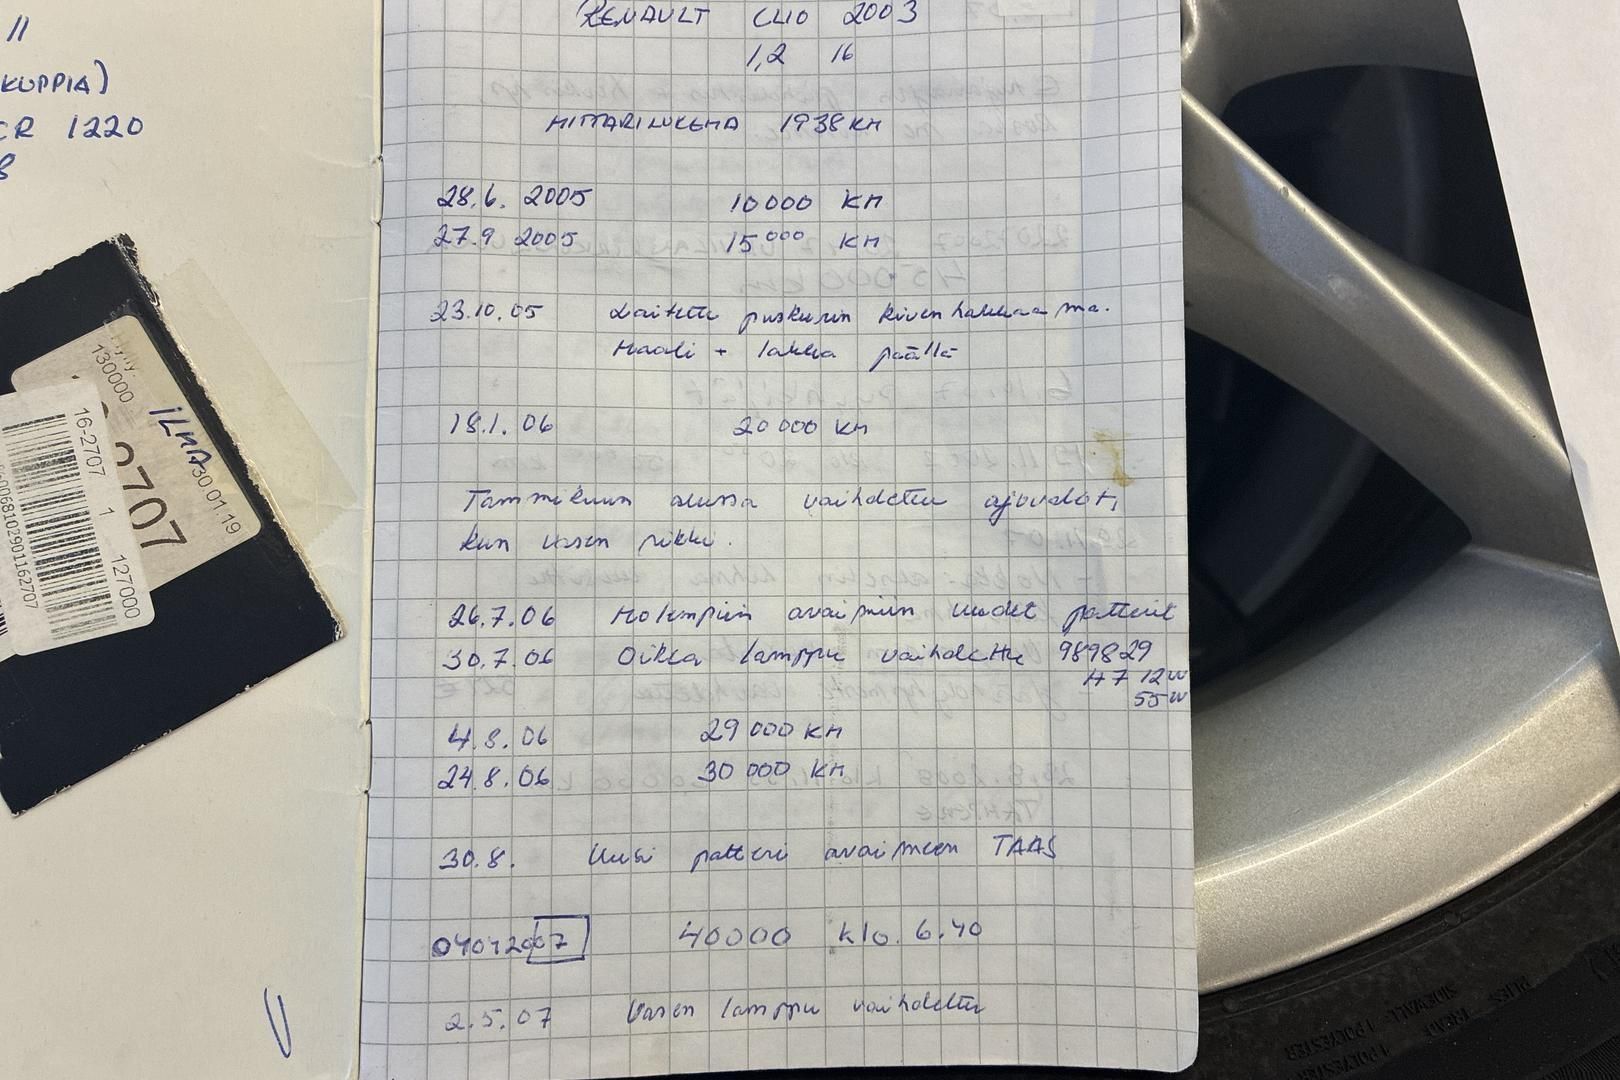 II
KUPPIA)
CR 1220
8
Hylly:
130000
ILMA
30.01.19
2707
16-2707 1 127000
RENAULT CLIO 2003
1,2 16
MITTARILUKEMA 1938 KM
28.6. 2005 10 000 KM
27.9 2005 15 000 KM
23.10.05 Laitettu puskurin kivenhakkaama.
Maali + lakka päällä
18.1.06 20 000 KM
Tammikuun alussa vaihdettu ajovalot,
kun vasen rikki.
26.7.06 Molempiin avaimiin uudet patterit
30.7.06 Oikea lamppu vaihdettu 989829
H7 12W
55W
4.8.06 29 000 KM
24.8.06 30 000 KM
30.8. Uusi patteri avaimeen TAAS
04042007 40000 klo. 6.40
2.5.07 Vasen lamppu vaihdettu